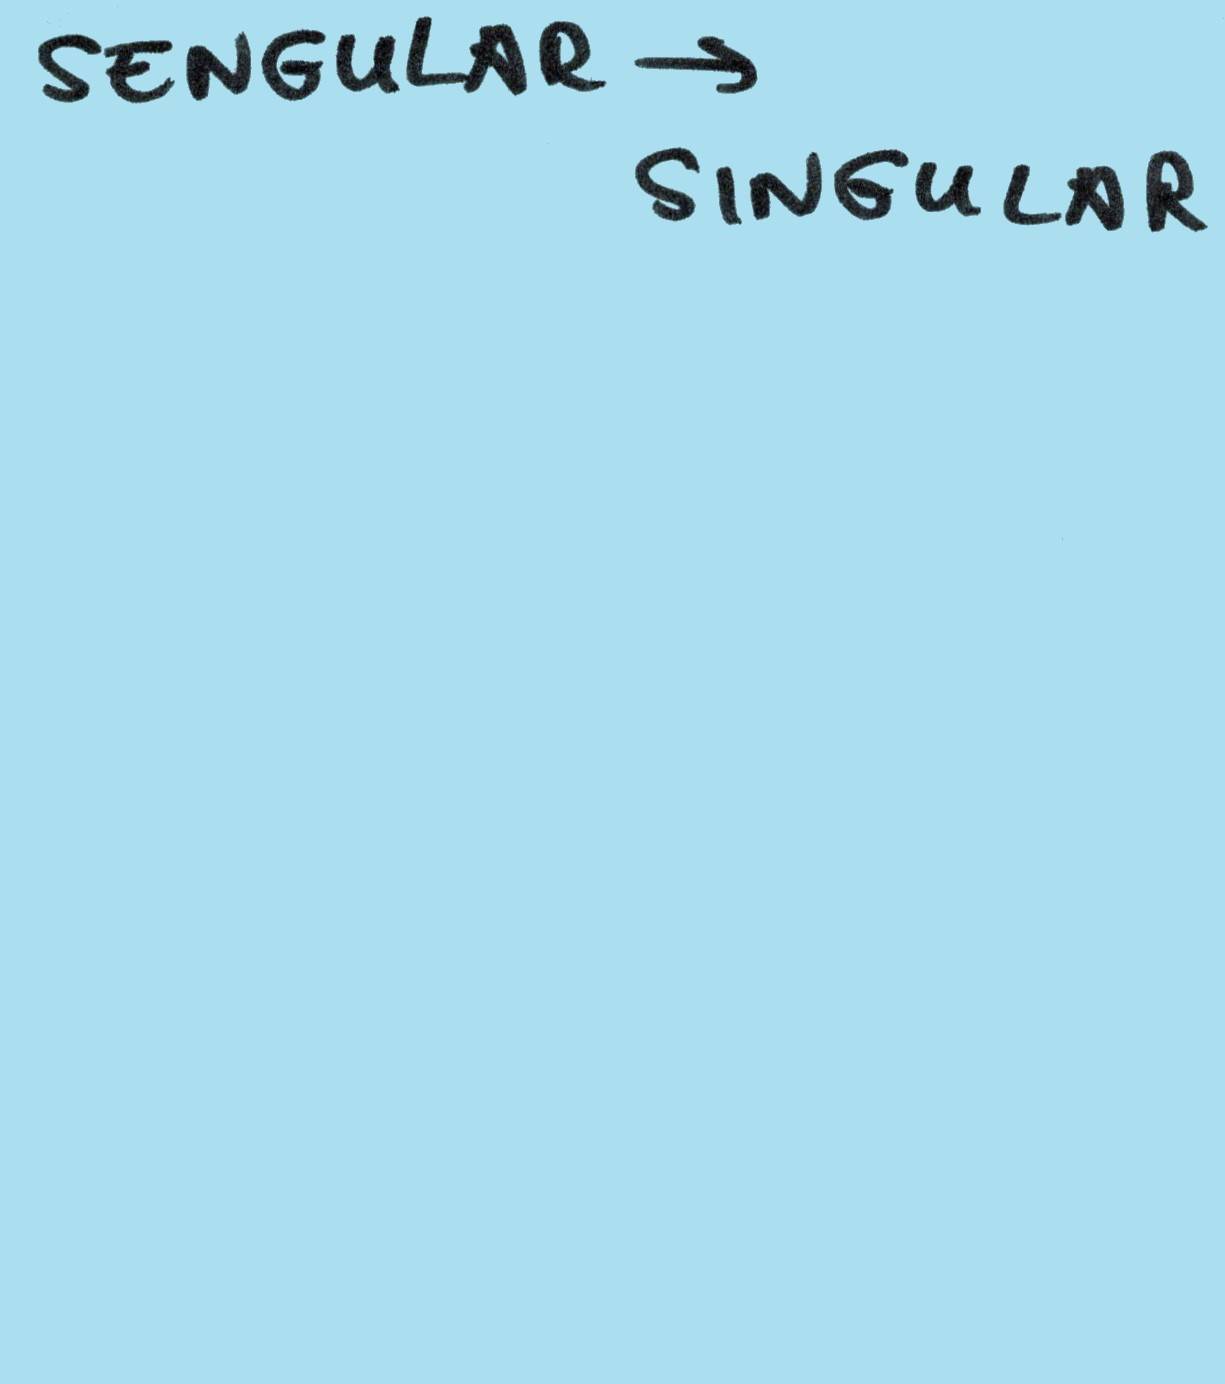 SENGULAR →
SINGULAR